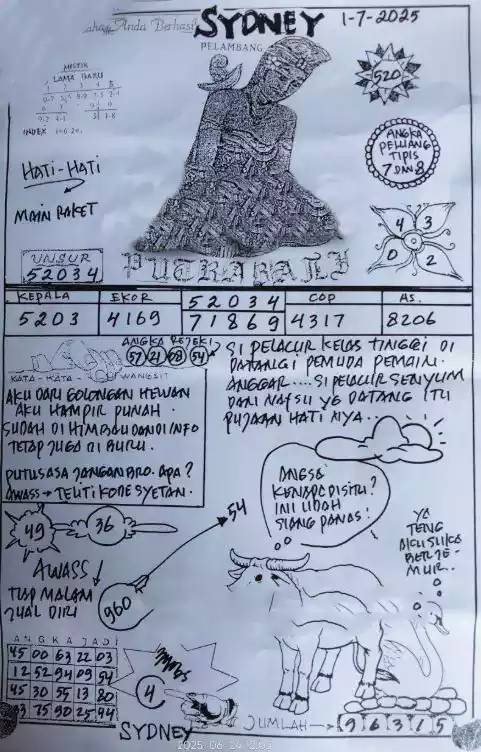 Anda Berhasil
SYDNEY
1-7-2025
PELAMBANG
MISTIK
LAMA BARU
1 2 3 4 5
INDEX
HATI-HATI
MAIN PAKET
UNSUR
52034
520
ANGKA
PELUANG
TIPIS
7 DAN 8
4 3
0 2
PUTRA RAJA
KEPALA EKOR 52034 COP AS.
5203 4169 71869 4317 8206
ANGKA REJEKI
57 21 68 54
KATA - KATA WANGSIT
AKU DARI GOLONGAN HEWAN
AKU HAMPIR PUNAH.
SUDAH DI HIMBAU DAN DI INFO
TETAP JUGA DI BURU.
PUTUS ASA JANGAN BRO. APA?
AWASS → TELITI KODE SYETAN.
SI PELACUR KELAS TINGGI DI
DATANGI PEMUDA PEMAIN.
ANGGAR.... SI PELACUR SENYUM
DAN NAFSU YG DATANG ITU
PUJAAN HATI NYA...
49
36
54
960
AWASS
TIAP MALAM
JUAL DIRI
ANGSA
KENAPA DISITU?
INI UDAH
SIANG PANAS!
YA
TENG
AKU SUKA
BERJE-
MUR..
ANGKA JADI
45 00 63 22 03
12 52 94 09 54
45 30 55 13 80
93 75 90 25 94
4
SYDNEY
JUMLAH → 96315
2025-06-24 12:03